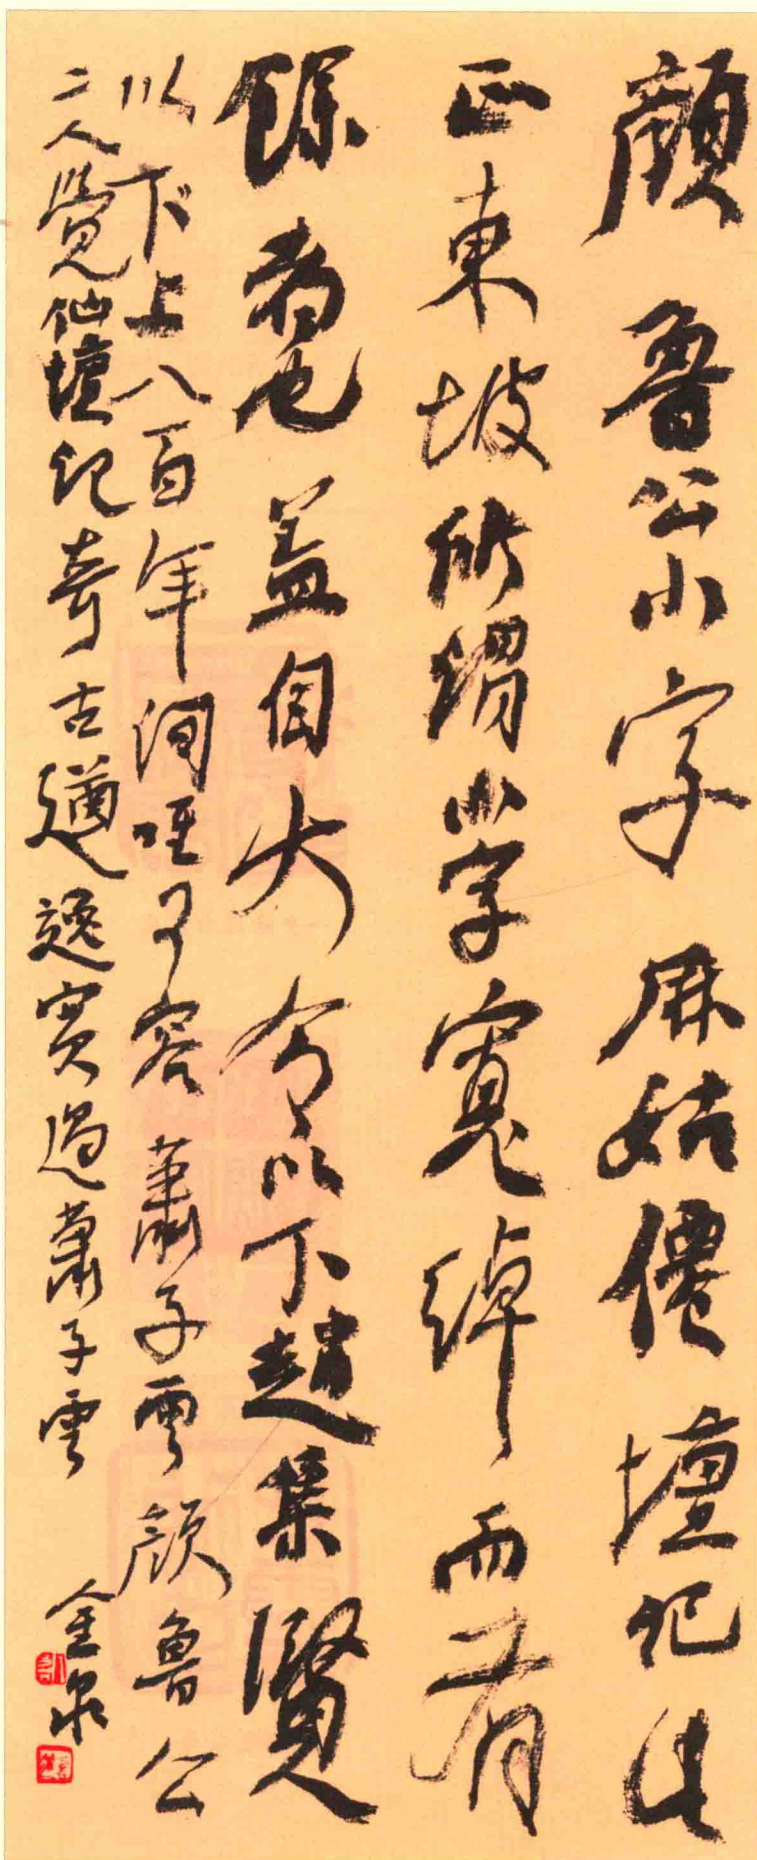 顏魯公小字麻姑僊壇記此
正東坡所謂小字寬綽而有
餘者也蓋自大令以下趙集賢
以下上八百年間唯可容蕭子雲顏魯公
二人覺仙壇記奇古遒逸實過蕭子雲
金泉